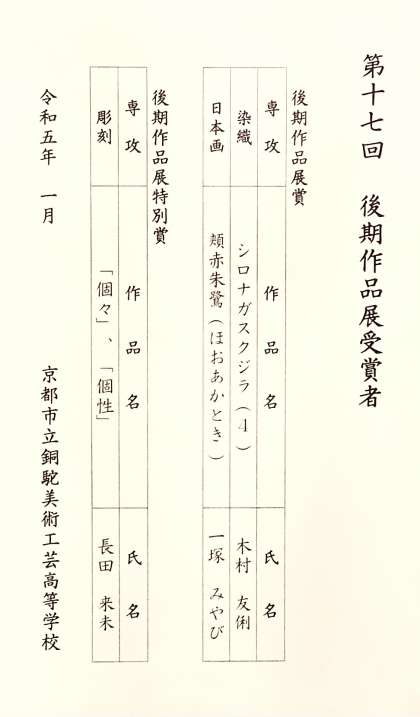 第十七回　後期作品展受賞者
後期作品展賞
専攻　作品名　氏名
染織　シロナガスクジラ（4）　木村　友俐
日本画　頬赤朱鷺（ほおあかとき）　一塚　みやび
後期作品展特別賞
専攻　作品名　氏名
彫刻　「個々」、「個性」　長田　来未
令和五年　一月
京都市立銅駝美術工芸高等学校